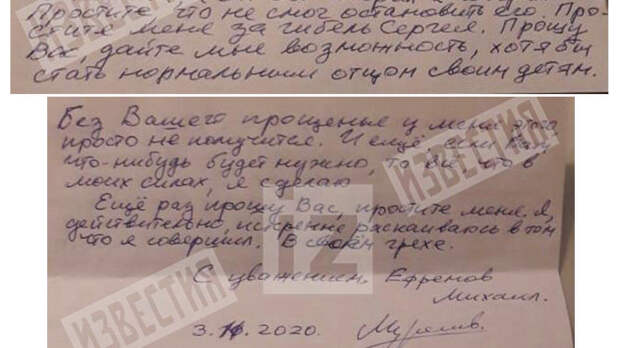 Простите, что не смог остановить его. Про-
стите меня за гибель Сергея. Прошу
Вас дайте мне возможность, хотя бы
стать нормальным отцом своим детям.
Без Вашего прощенье у меня этого
просто не получится. И ещё, если Вам
что-нибудь будет нужно, то всё что в
моих силах, я сделаю
Ещё раз прошу Вас, простите меня. Я,
действительно, искренне раскаиваюсь в том
что я совершил. В своём грехе.
С уважением Ефремов
Михаил.
2020.
ИЗВЕСТИЯ
ИЗВЕСТИЯ
ИЗВЕСТИЯ
iz